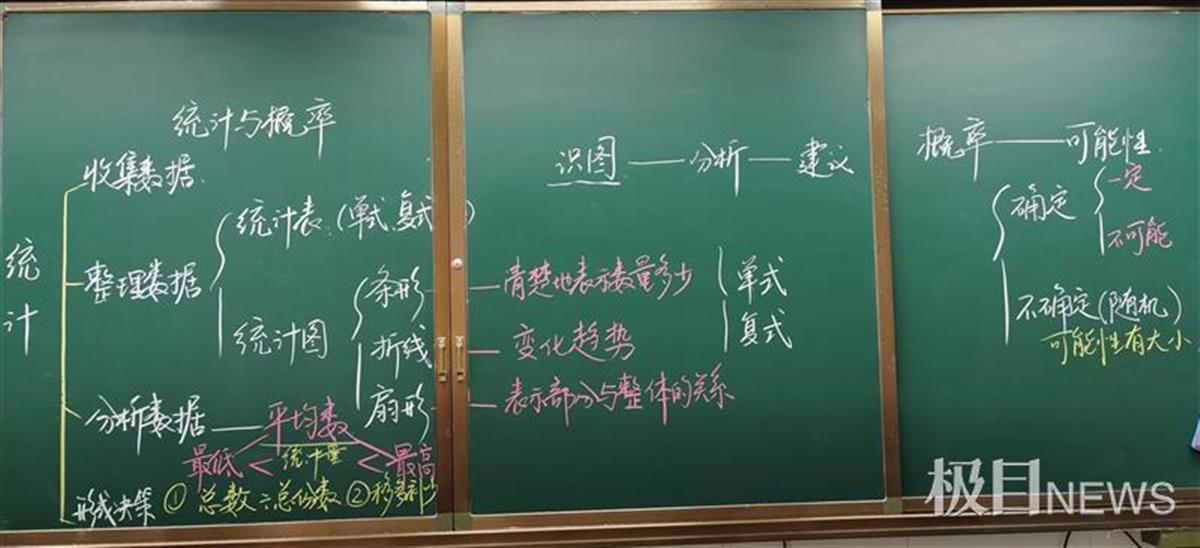 统计与概率
统计
收集数据
整理数据
统计表(单式、复式)
统计图
条形——清楚地表示数量多少
折线——变化趋势
扇形——表示部分与整体的关系
单式
复式
分析数据——平均数
最低<统计量<最高
形成决策
①总数÷总份数②移多补少
识图——分析——建议
概率——可能性
确定
一定
不可能
不确定(随机)
可能性有大小
极目NEWS